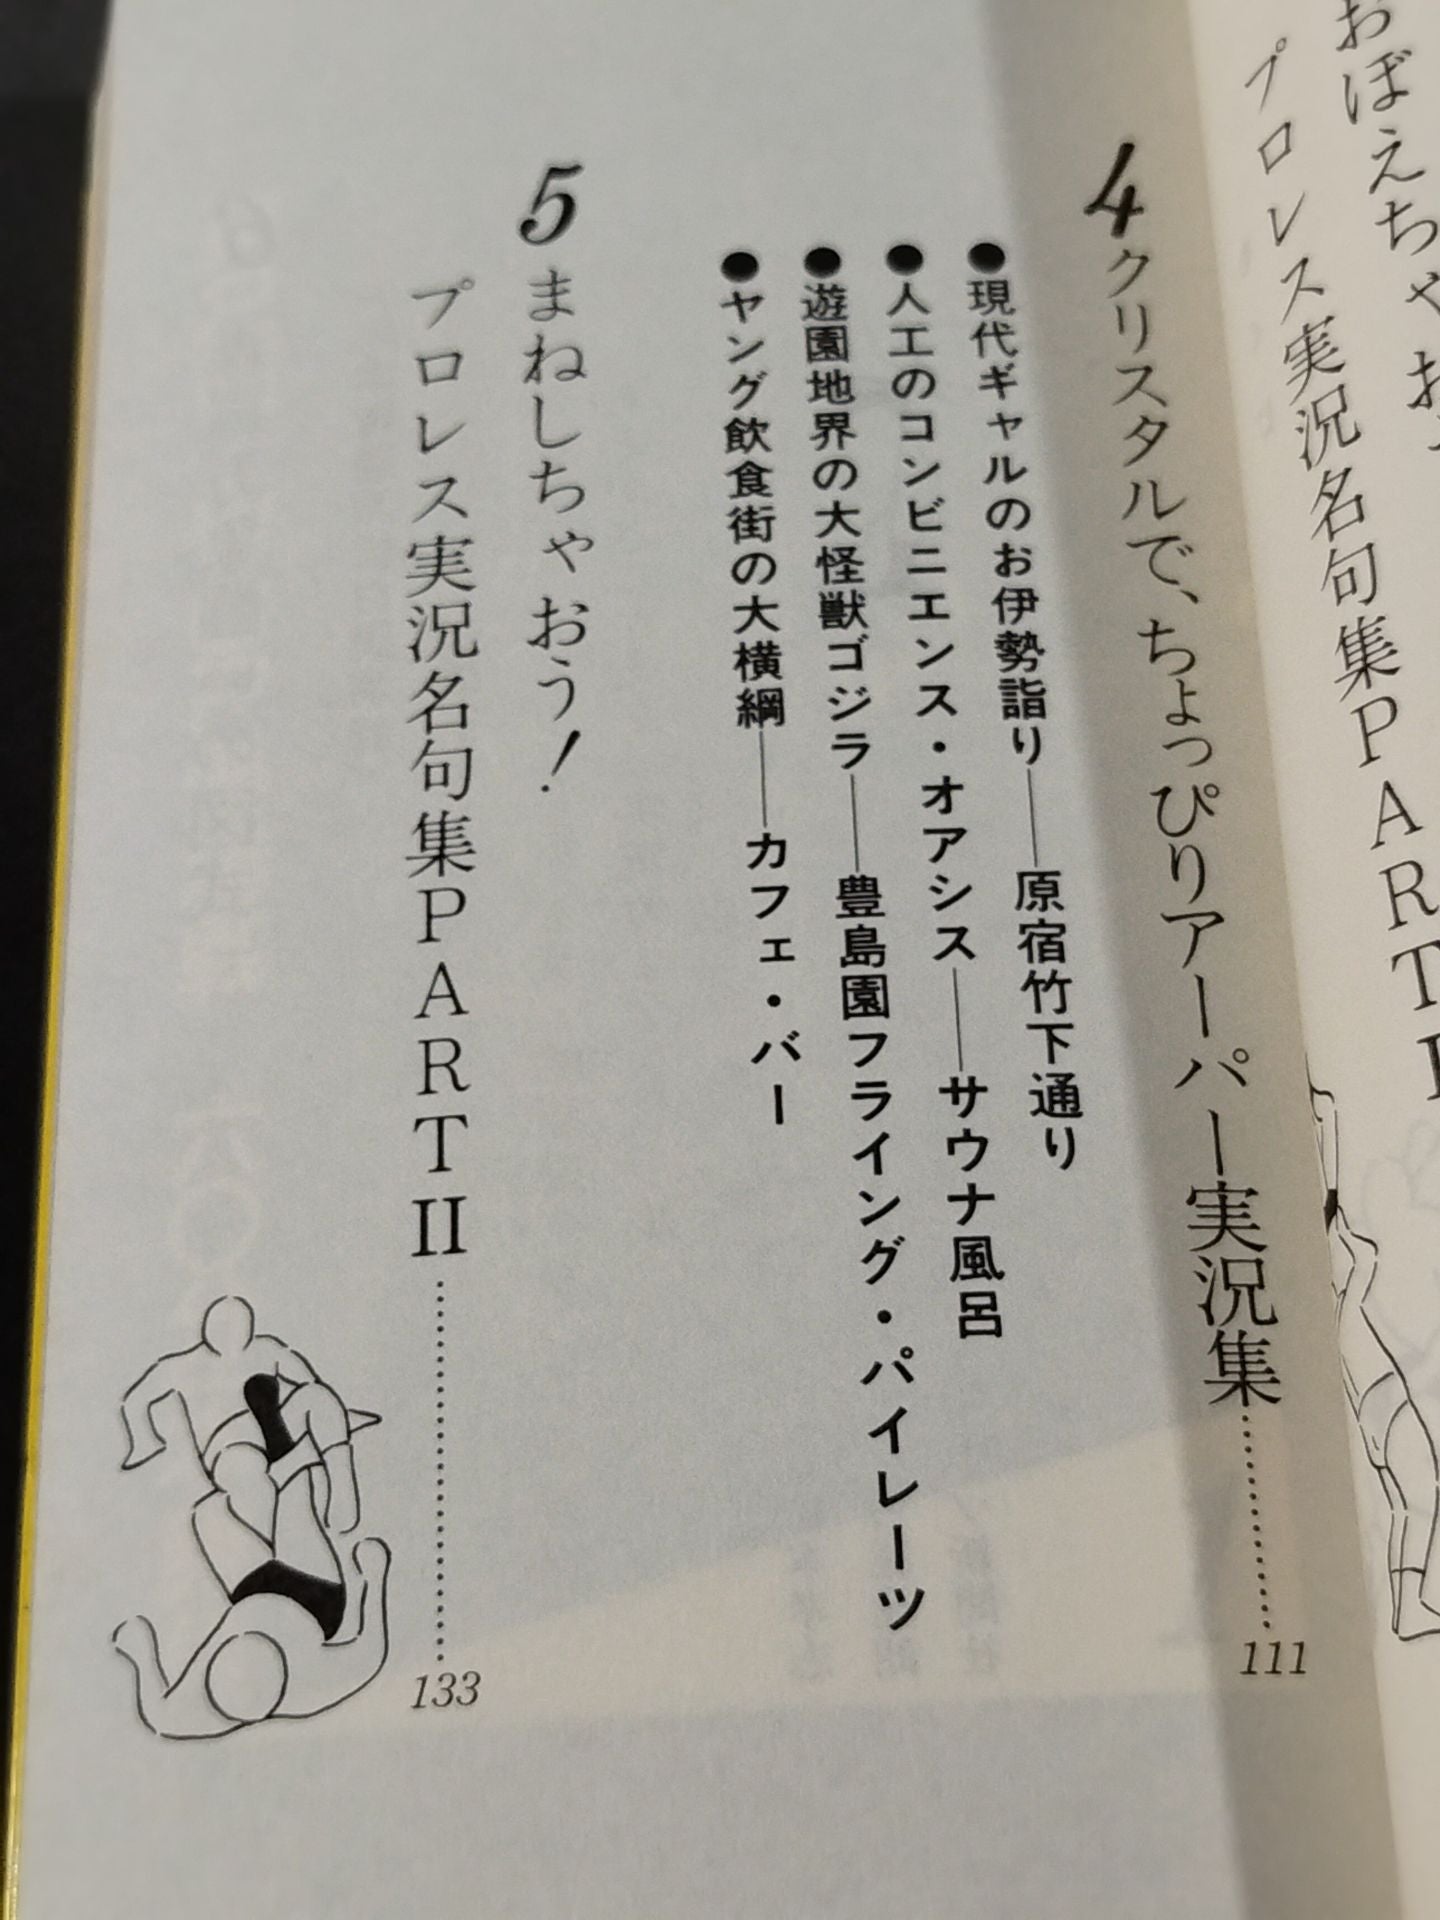 プロレス実況名句集PART
4 クリスタルで、ちょっぴりアーパー実況集……111
●現代ギャルのお伊勢詣り──原宿竹下通り
●人工のコンビニエンス・オアシス──サウナ風呂
●遊園地界の大怪獣ゴジラ──豊島園フライング・パイレーツ
●ヤング飲食街の大横綱──カフェ・バー
5 まねしちゃおう！
プロレス実況名句集PART II……133